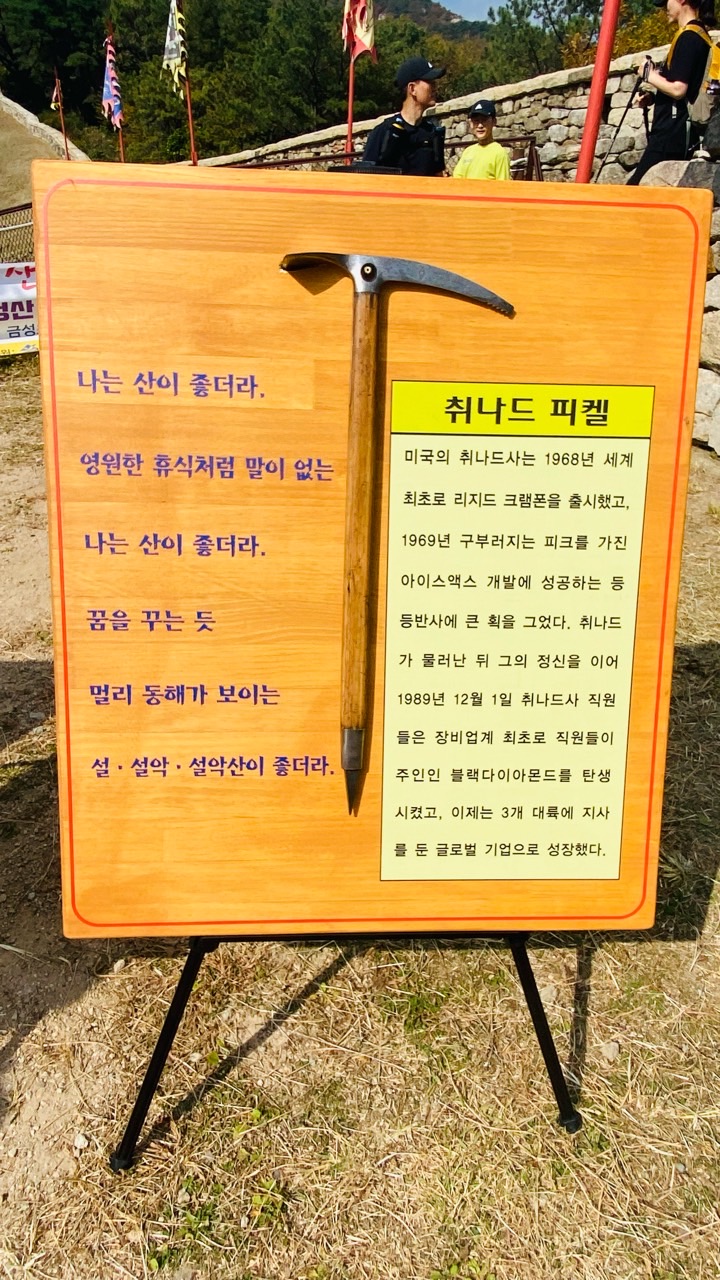 나는 산이 좋더라.
영원한 휴식처럼 말이 없는
나는 산이 좋더라.
꿈을 꾸는 듯
멀리 동해가 보이는
설·설악·설악산이 좋더라.
취나드 피켈
미국의 취나드사는 1968년 세계
최초로 리지드 크램폰을 출시했고,
1969년 구부러지는 피크를 가진
아이스액스 개발에 성공하는 등
등반사에 큰 획을 그었다. 취나드
가 물러난 뒤 그의 정신을 이어
1989년 12월 1일 취나드사 직원
들은 장비업계 최초로 직원들이
주인인 블랙다이아몬드를 탄생
시켰고, 이제는 3개 대륙에 지사
를 둔 글로벌 기업으로 성장했다.
금성